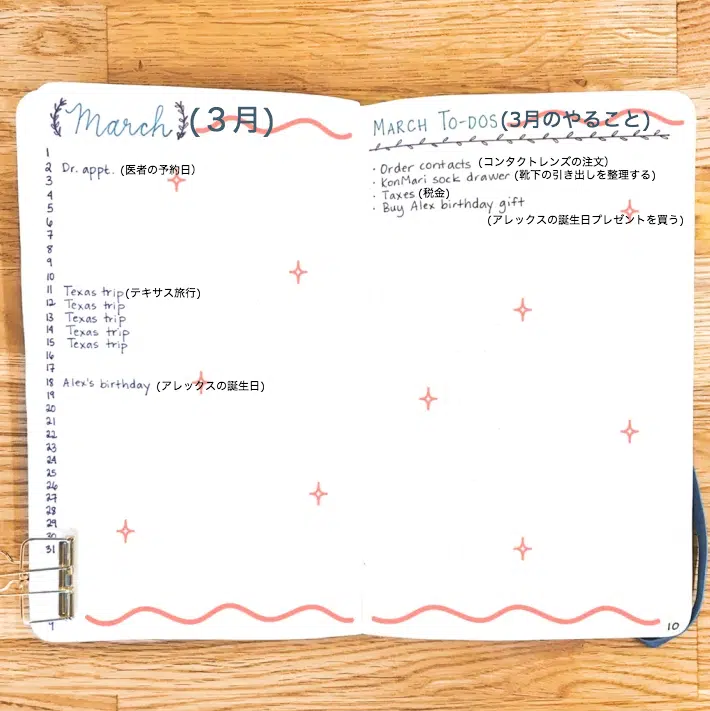 March (3月)
1
2 Dr. appt. (医者の予約日)
3
4
5
6
7
8
9
10
11 Texas trip (テキサス旅行)
12 Texas trip
13 Texas trip
14 Texas trip
15 Texas trip
16
17
18 Alex's birthday (アレックスの誕生日)
19
20
21
22
23
24
25
26
27
28
29
30
31
9
MARCH TO-DOS (3月のやること)
· Order contacts (コンタクトレンズの注文)
· KonMari sock drawer (靴下の引き出しを整理する)
· Taxes (税金)
· Buy Alex birthday gift
(アレックスの誕生日プレゼントを買う)
10